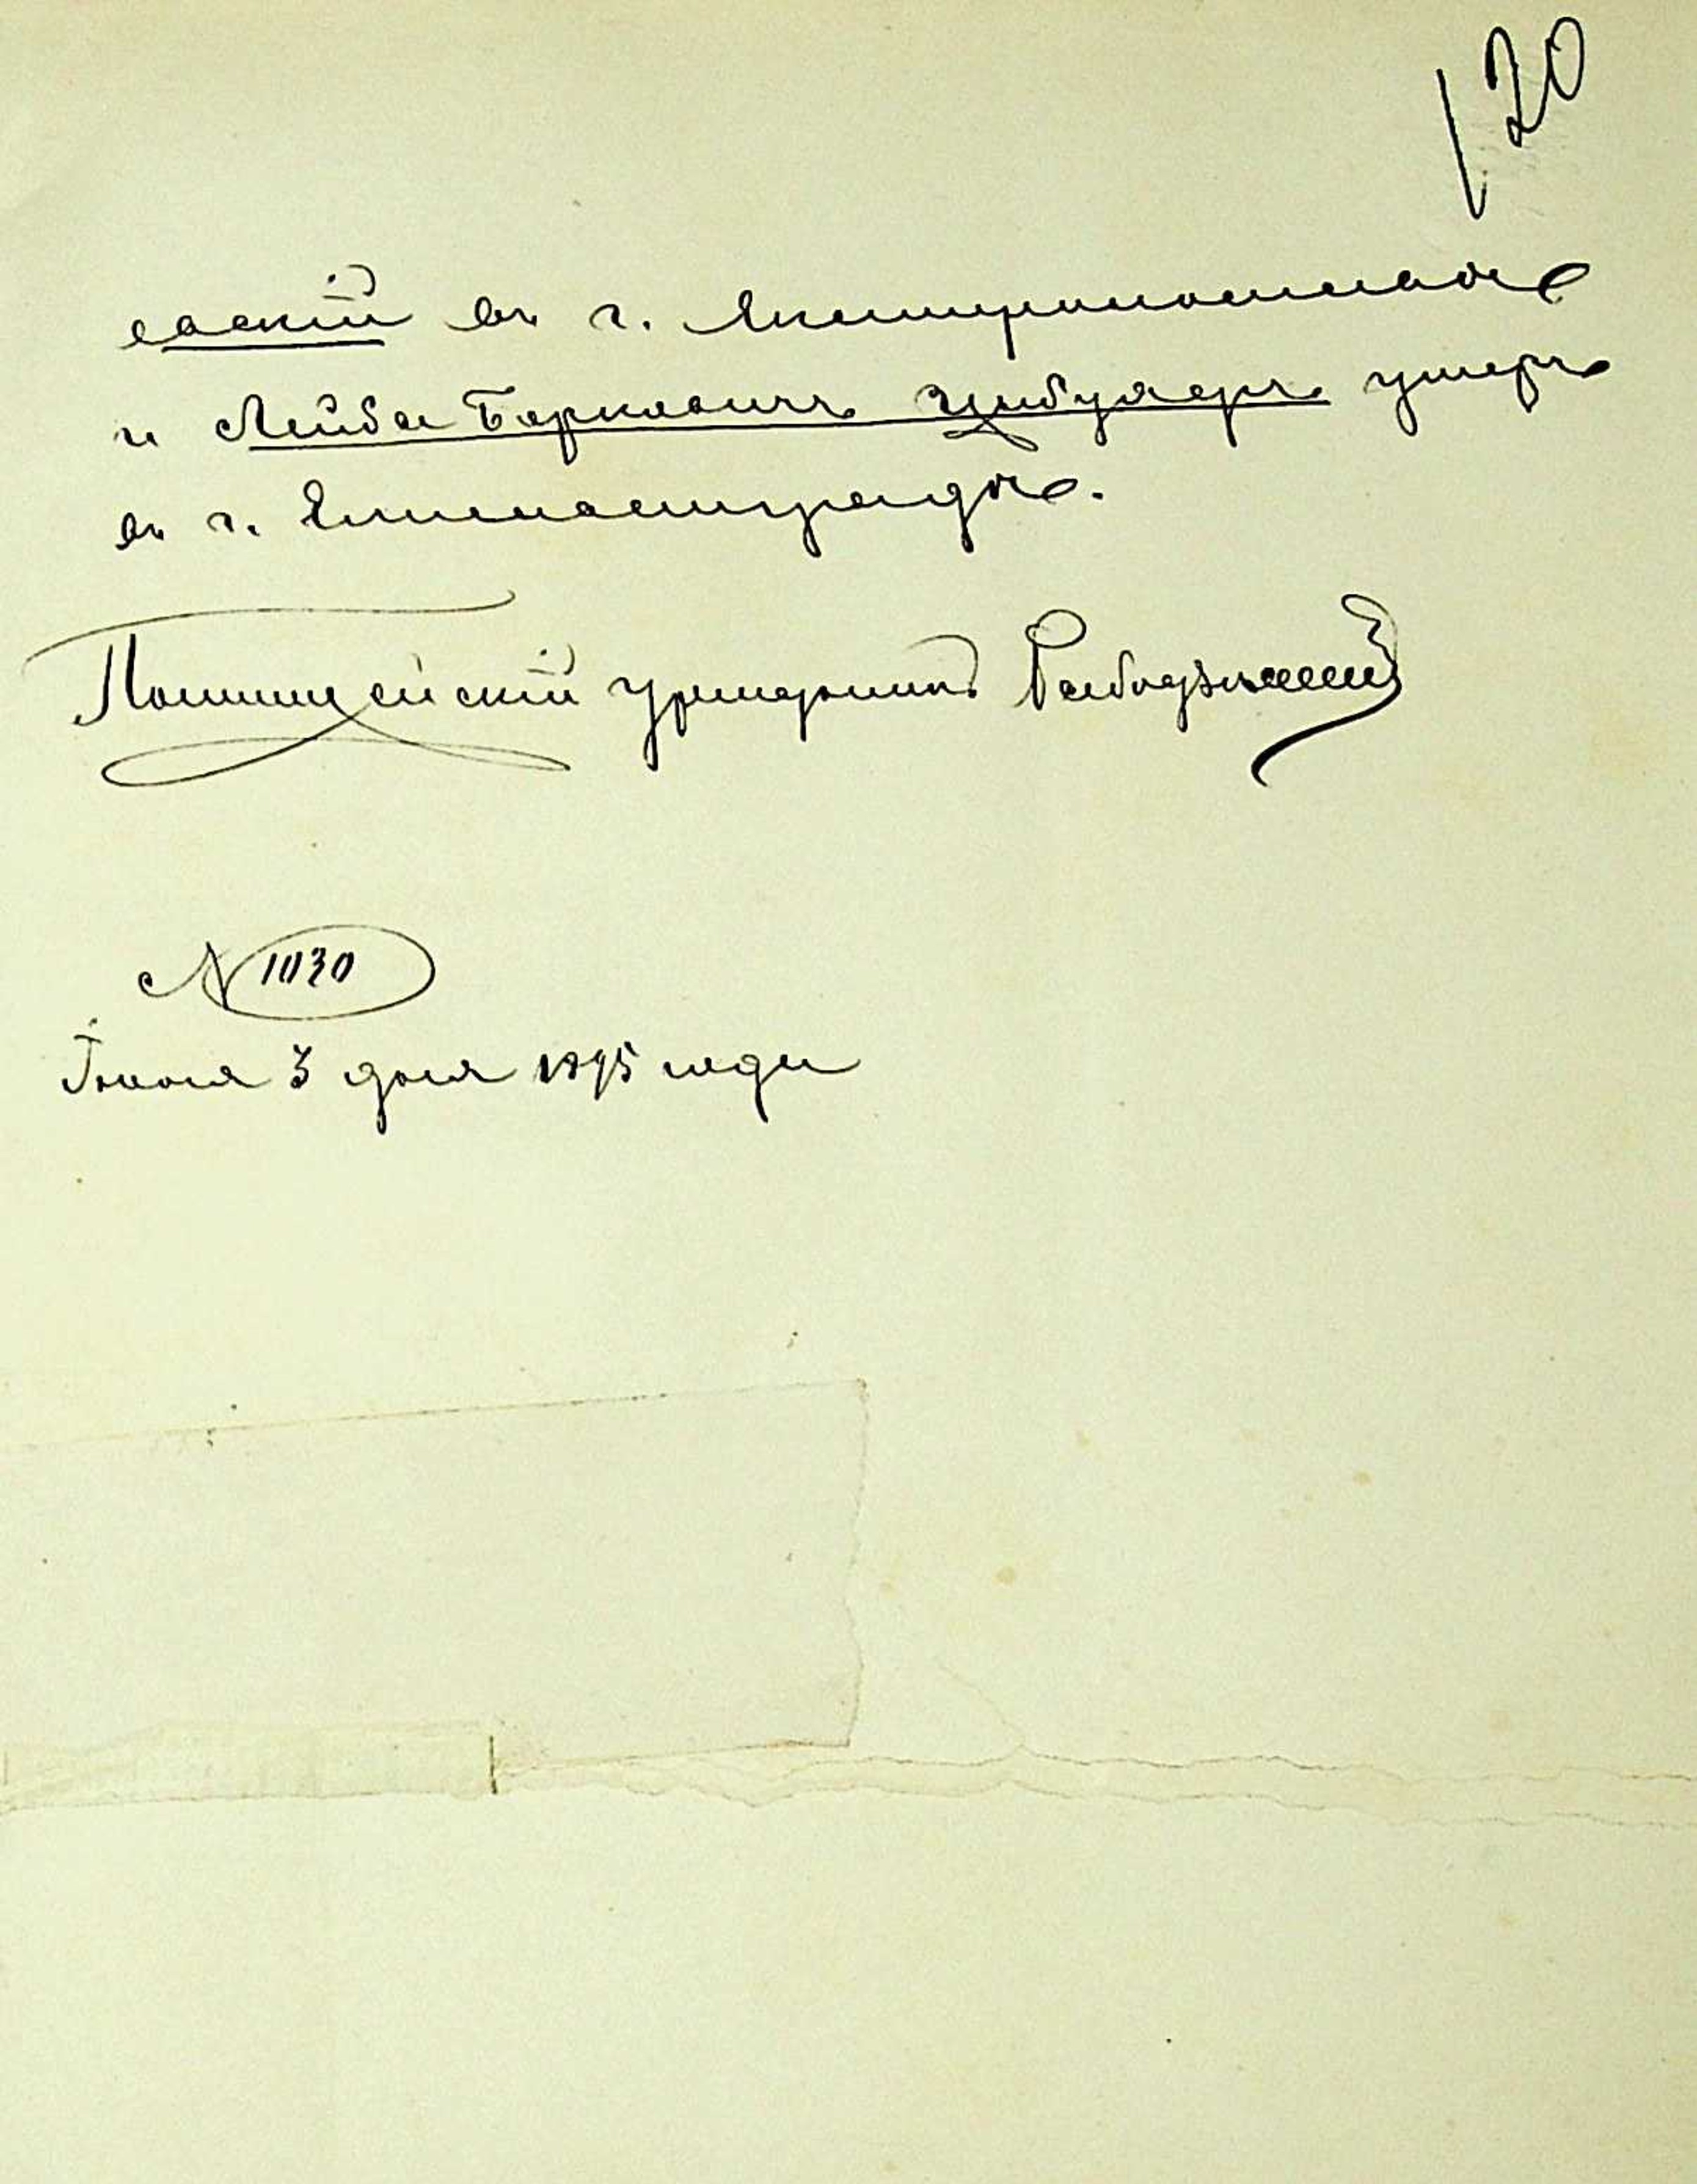 120
евскій въ г. Екатеринославѣ
и Лейба Берковичъ Цибулеръ умеръ
въ г. Елисаветградѣ.
Полицейскій урядникъ
№ 1030
Іюня 3 дня 1895 года